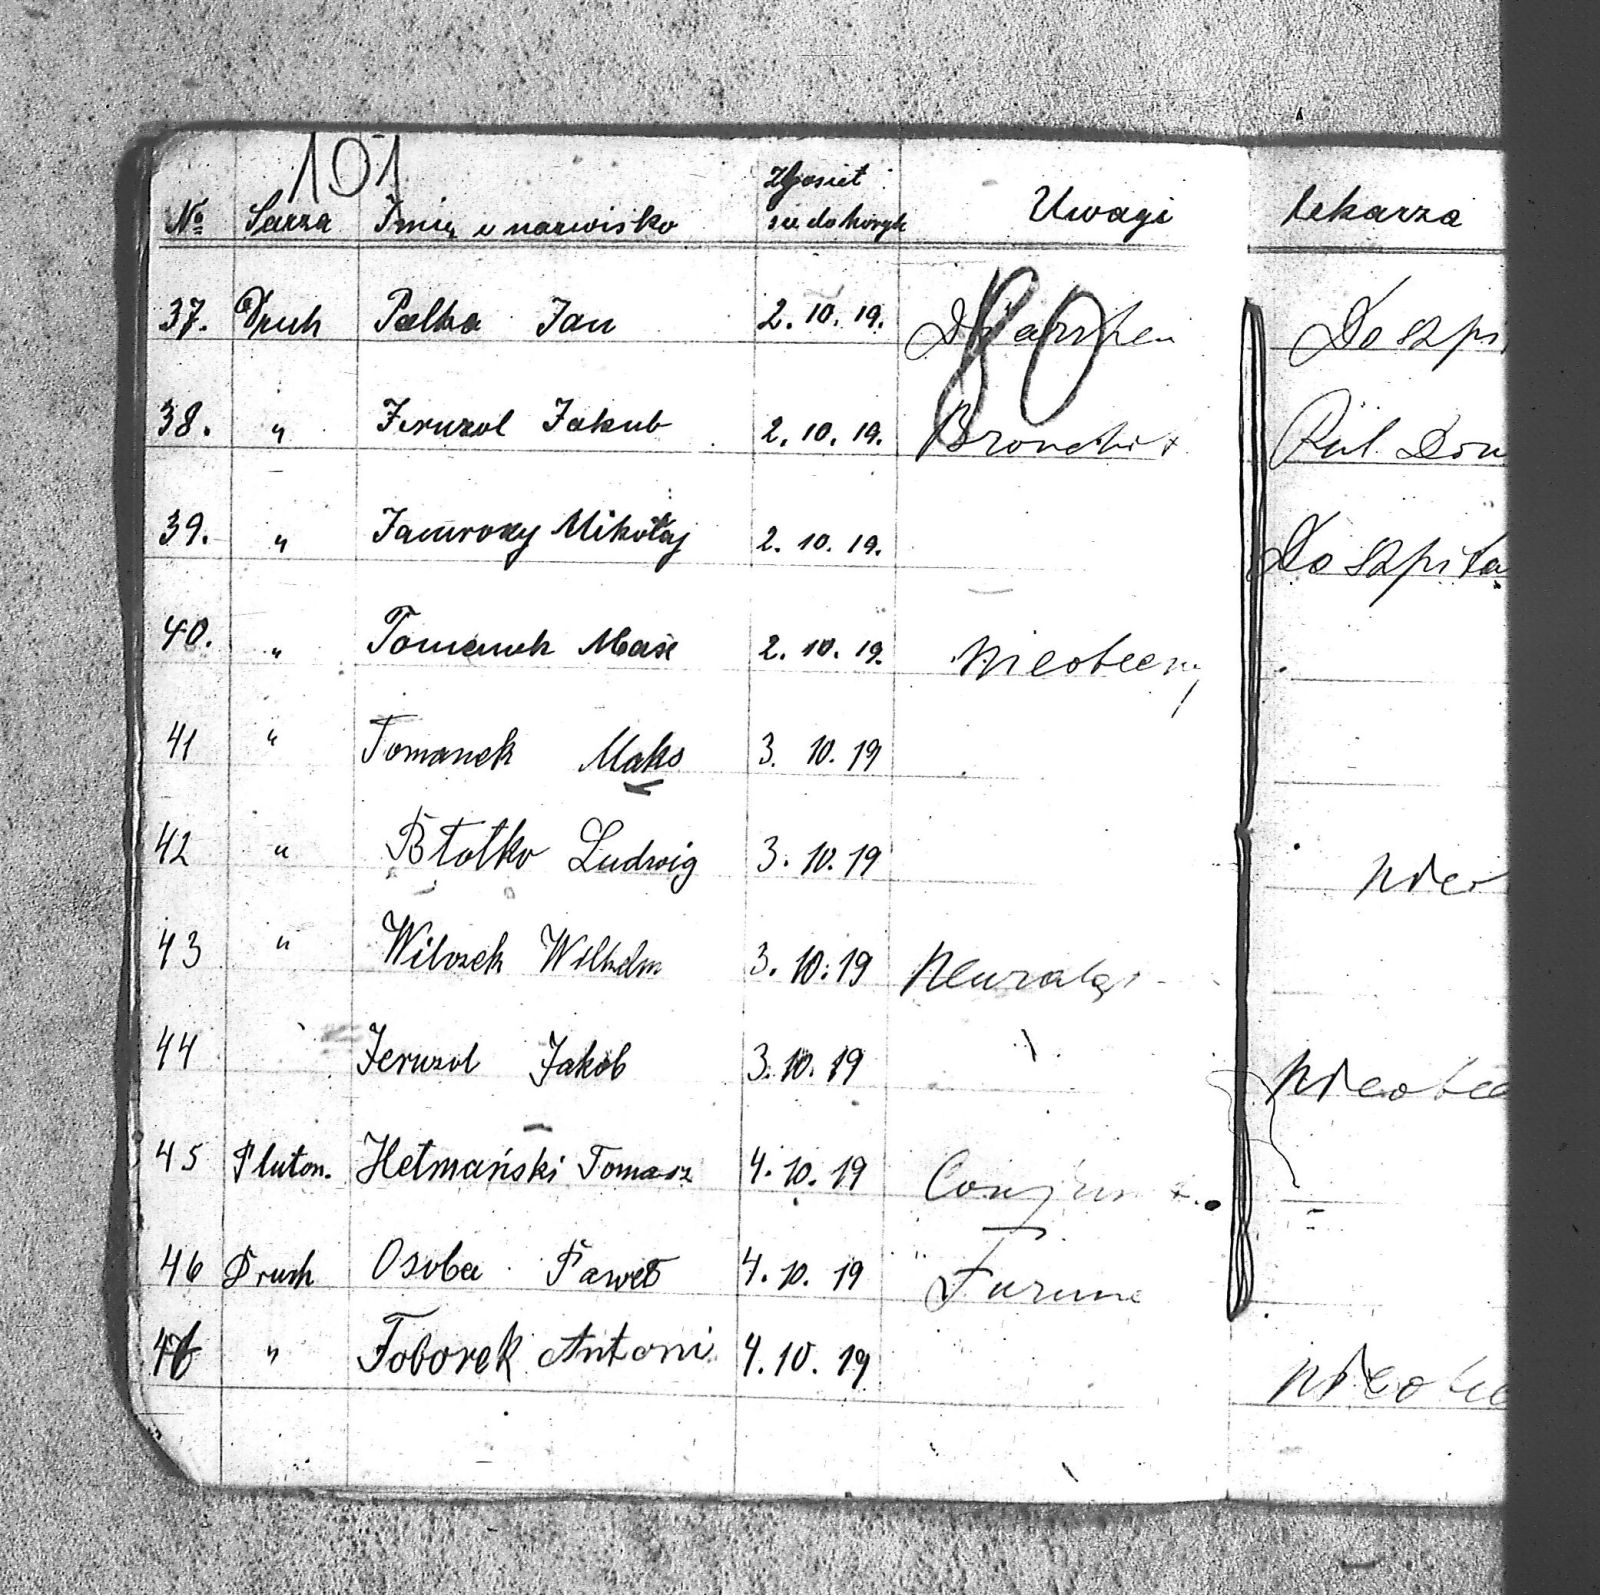 101
Zgłosił
№ Szarża Imię i nazwisko się do Uwagi lekarza
37. Druh Palka Jan 2. 10. 19. Do szpi
80
38. " Jeruzol Jakub 2. 10. 19. Bronchit
39. " Jamrozy Mikołaj 2. 10. 19. Do szpita
40. " Tomanek Max 2. 10. 19. Nieobecny
41 " Tomanek Maks 3. 10. 19
42 " Ludwig 3. 10. 19 nieo
43 " Wilczek Wilhelm 3. 10. 19 Neuralgi
44 Jeruzol Jakób 3. 10. 19 nieobec
45 Pluton. Hetmański Tomasz 4. 10. 19 Conjunkt.
46 Druh Osoba Paweł 4. 10. 19 Furunc
" Toborek Antoni 4. 10. 19 nieobec